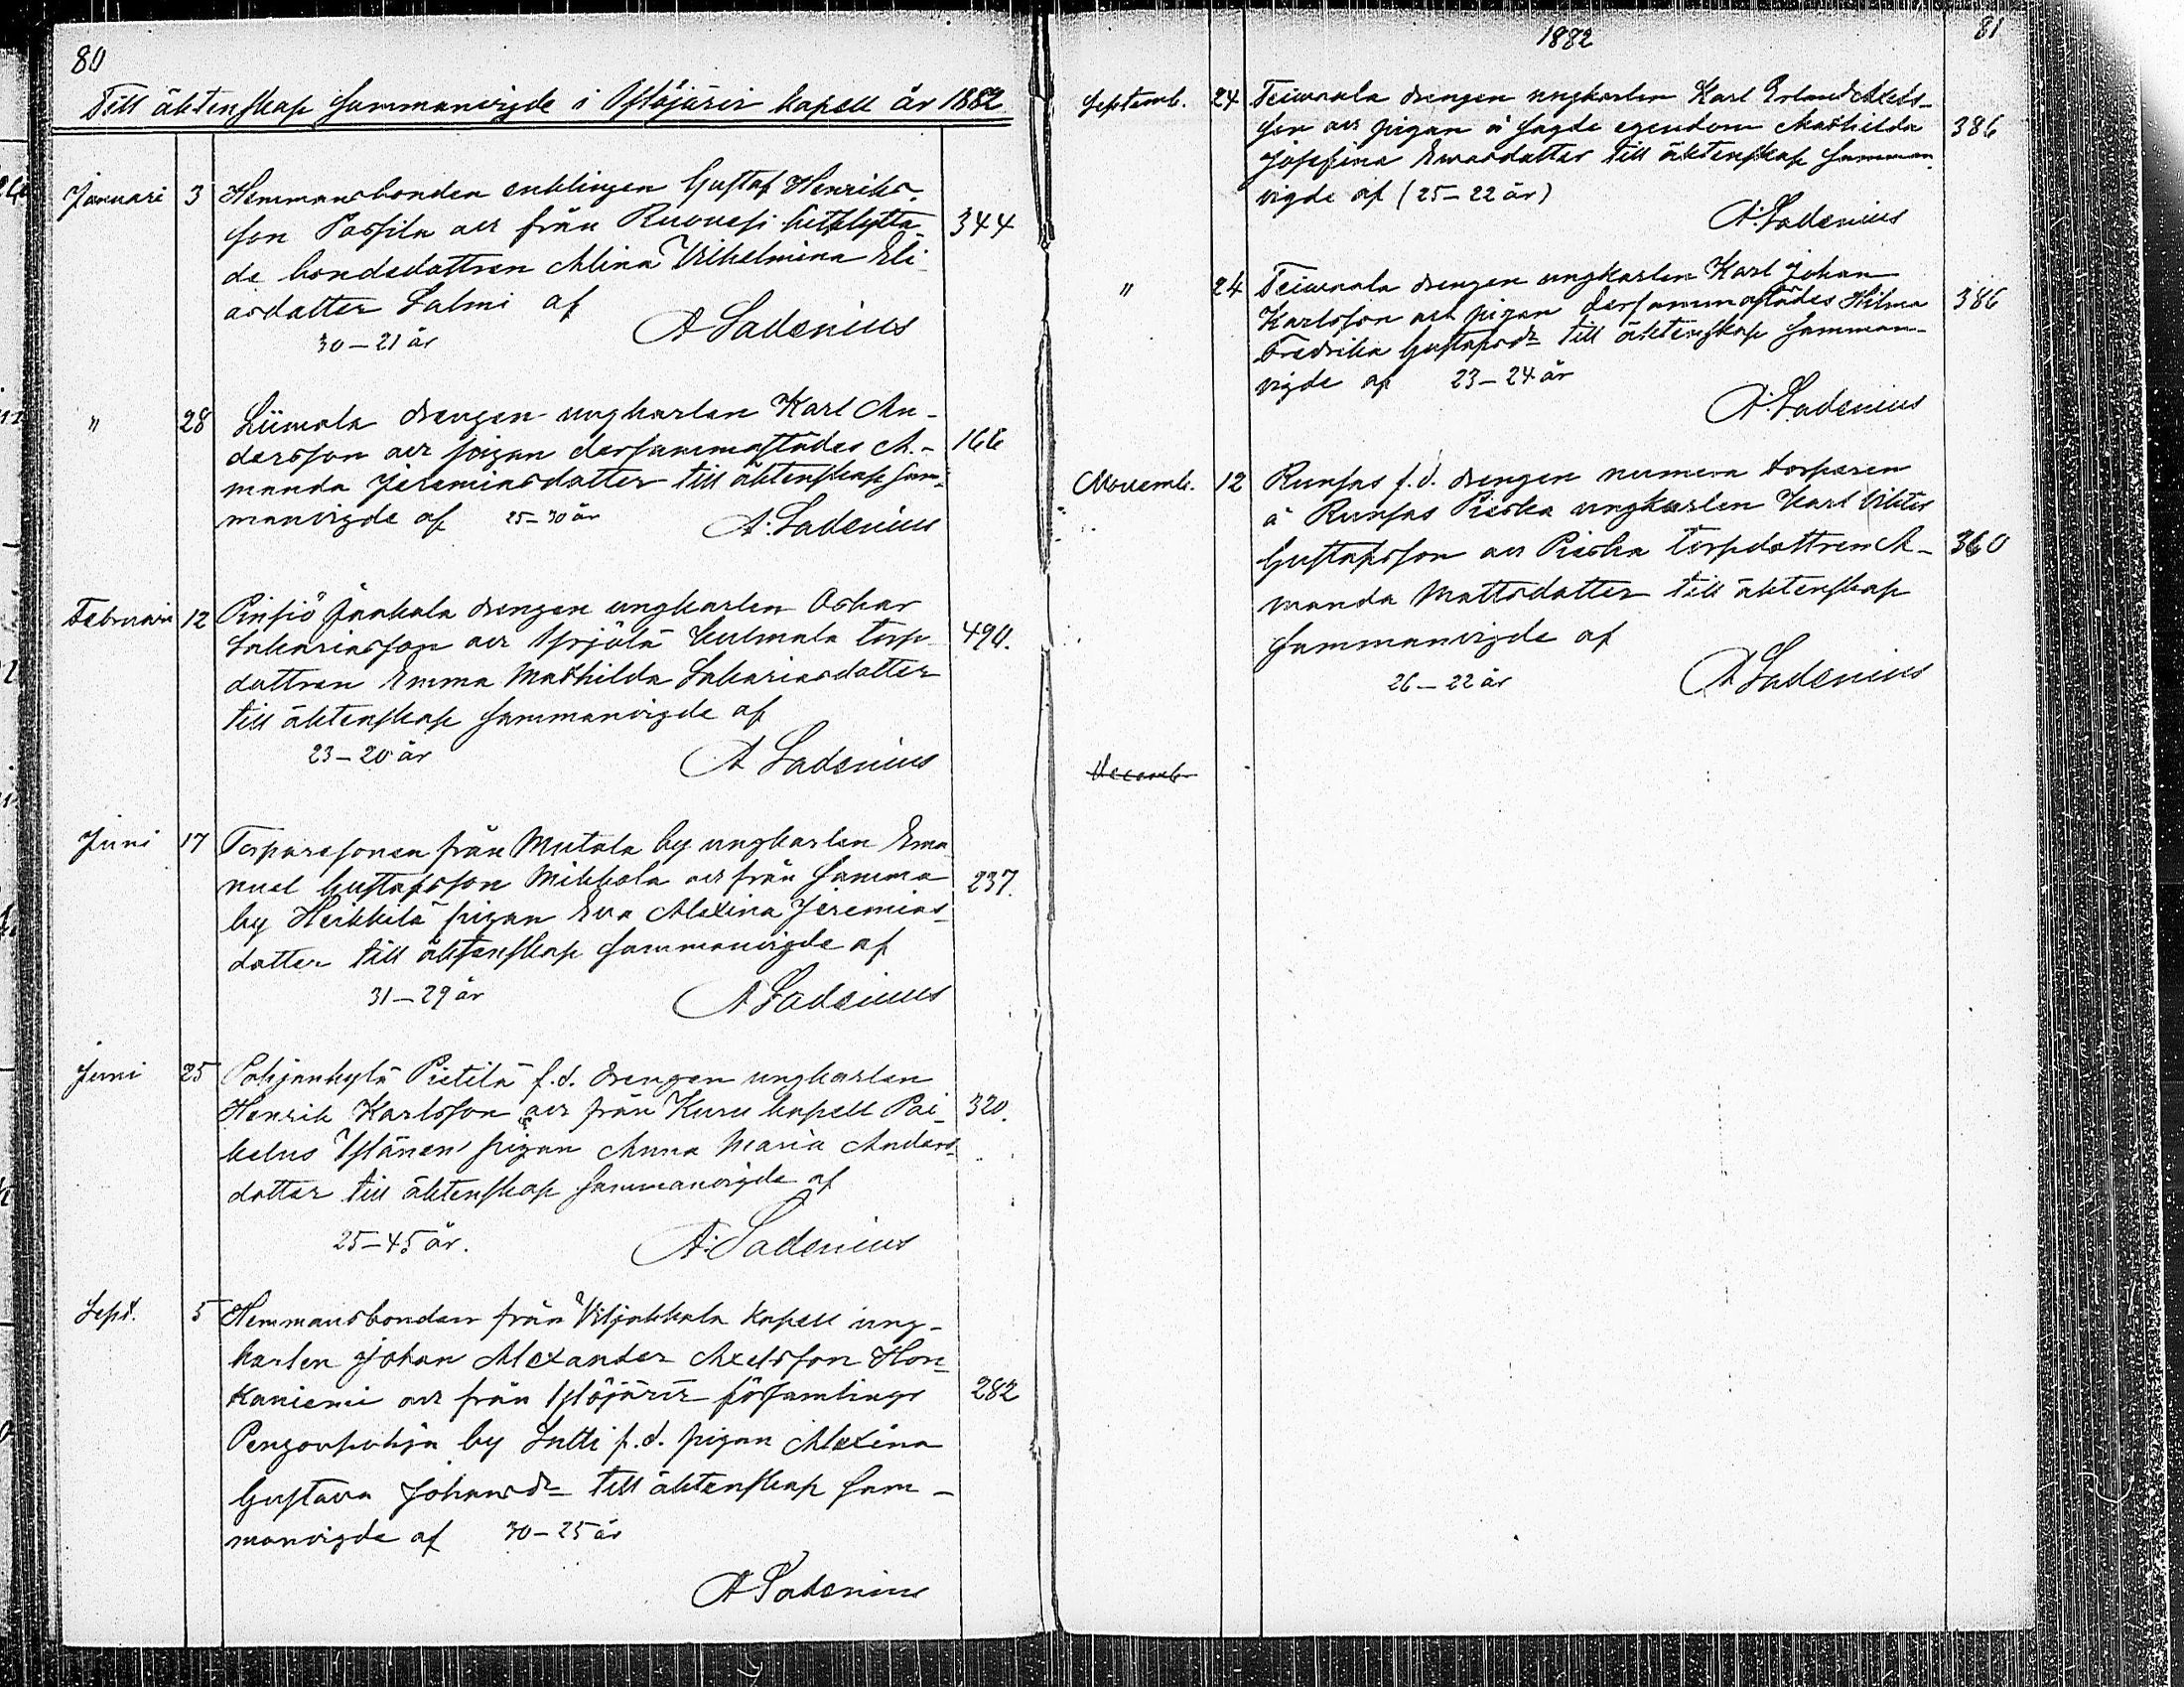 80
Till äktenskap sammanvigde i Ylöjärvi kapell år 1882
Januari 3 Hemmansbonden enklingen Gustaf Henriks-
son Passila och från Ruovesi hitflytta- 344
de bondedottren Alina Vilhelmina Eli-
asdotter Salmi af
30–21 år A Ladenius
" 28 Liimola drengen ungkarlen Karl An-
dersson och pigan dersammastädes A- 166
manda Jeremiasdotter till äktenskap sam-
manvigde af 25–30 år A. Ladenius
Februari 12 Pinsiö Jaakola drengen ungkarlen Oskar
Sakariasson och Yrjölä Kulmala torp- 490.
dottren Emma Mathilda Sakariasdotter
till äktenskap sammanvigde af
23–20 år A Ladenius
Juni 17 Torparesonen från Mutala by ungkarlen Ema-
nuel Gustafsson Mikkola och från samma 237.
by Heikkilä pigan Eva Alexina Jeremias-
dotter till äktenskap sammanvigde af
31–29 år A Ladenius
Juni 25 Pohjankylä Pietilä f.d. drengen ungkarlen
Henrik Karlsson och från Kuru kapell Pai- 320.
kelus Ylänen pigan Anna Maria Anders-
dotter till äktenskap sammanvigde af
25–45 år. A. Ladenius
Sept. 5 Hemmansbonden från Viljakkala Kapell ung-
karlen Johan Alexander Axelsson Hon-
kaniemi och från Ylöjärvi församlings 282
Pengonpohja by Sulti f.d. pigan Alexina
Gustava Johansdr till äktenskap sam-
manvigde af 30–25 år
A Ladenius
1882 81
Septemb. 24 Teivaala drengen ungkarlen Karl Erland Axels-
son och pigan å sagde egendom Mathilda 386
Josefina Evasdotter till äktenskap samman-
vigde af (25–22 år)
A. Ladenius
" 24 Teivaala drengen ungkarlen Karl Johan
Karlsson och pigan dersammastädes Hilma 386
Fredrika Gustafsdr till äktenskap samman-
vigde af 23–24 år
A. Ladenius
Novemb. 12 Runsas f.d. drengen numera torparen
å Runsas Pieska ungkarlen Karl Viktor
Gustafsson och Pieska torpdottren A- 360
manda Mattsdotter till äktenskap
sammanvigde af
26–22 år A Ladenius
Decemb.